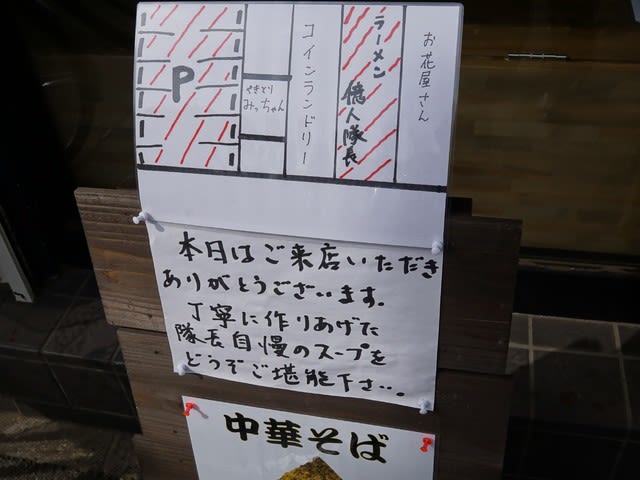 お花屋さん
ラーメン 億人隊長
コインランドリー
やきとり
みっちゃん
P
本日はご来店いただき
ありがとうございます。
丁寧に作りあげた
隊長自慢のスープを
どうぞご堪能下さい。
中華そば